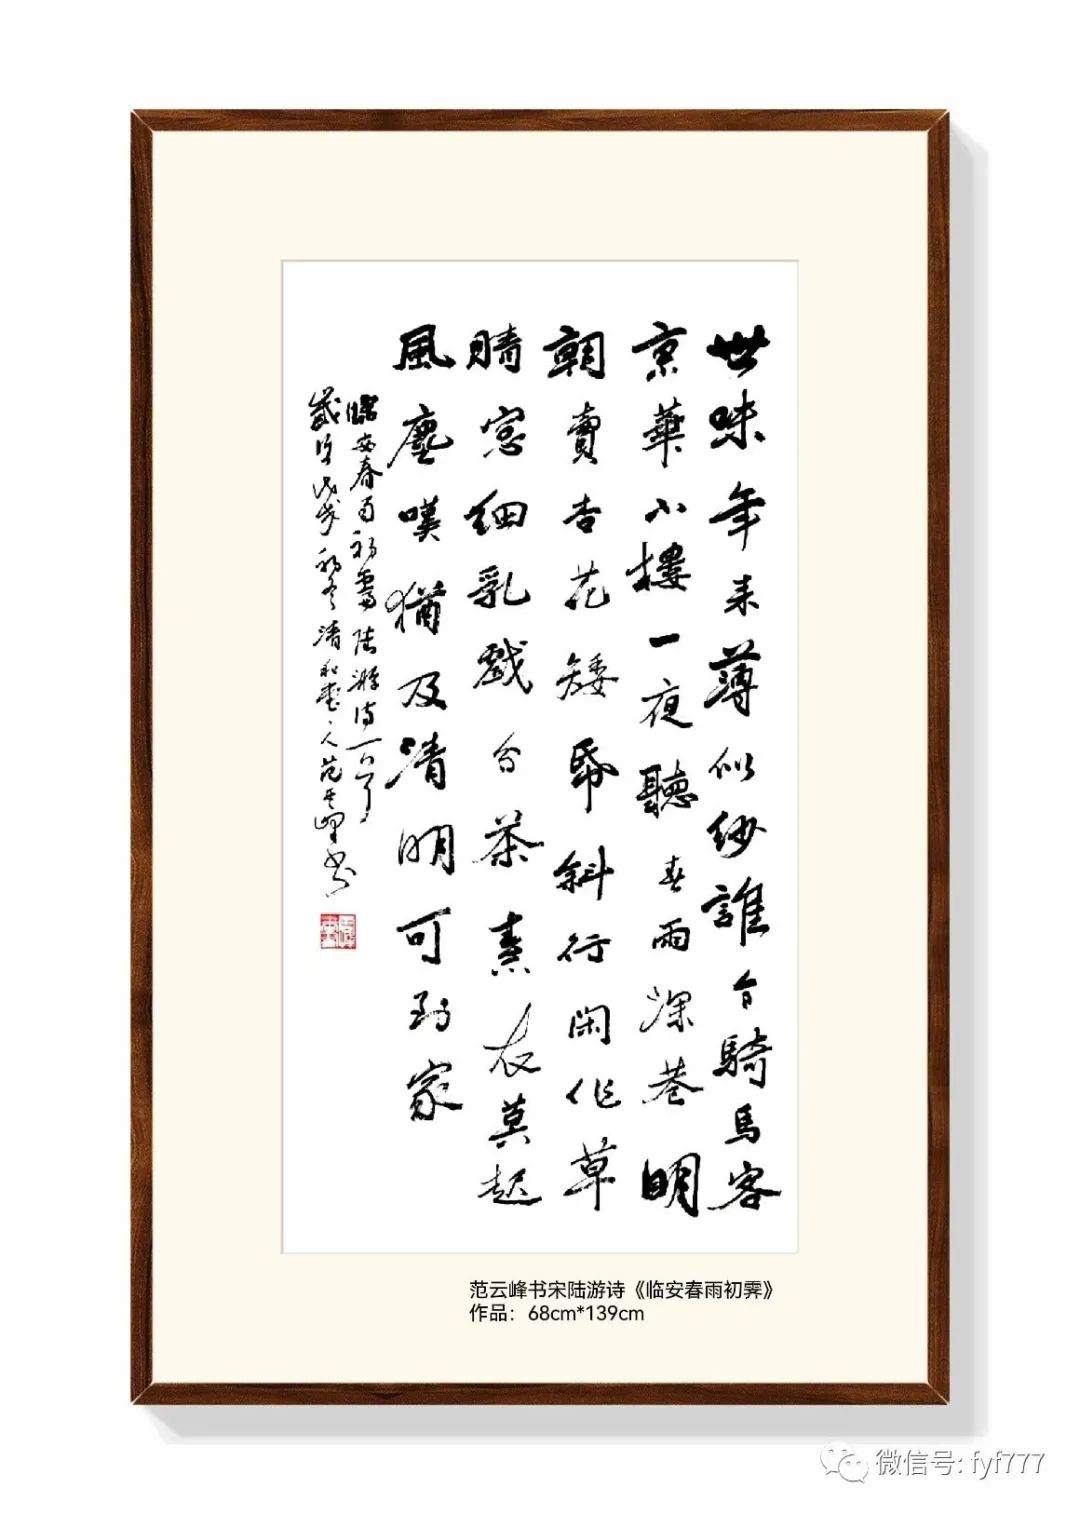 世味年来薄似纱誰令騎馬客
京華小樓一夜聽春雨深巷明
朝賣杏花矮帋斜行閑作草
晴窓细乳戲分茶素衣莫起
風塵嘆猶及清明可到家
臨安春雨初霽陸游诗一首
歲次戊戌初冬清和人范云峰书
范云峰书宋陆游诗《临安春雨初霁》
作品：68cm*139cm
微信号: fyf777